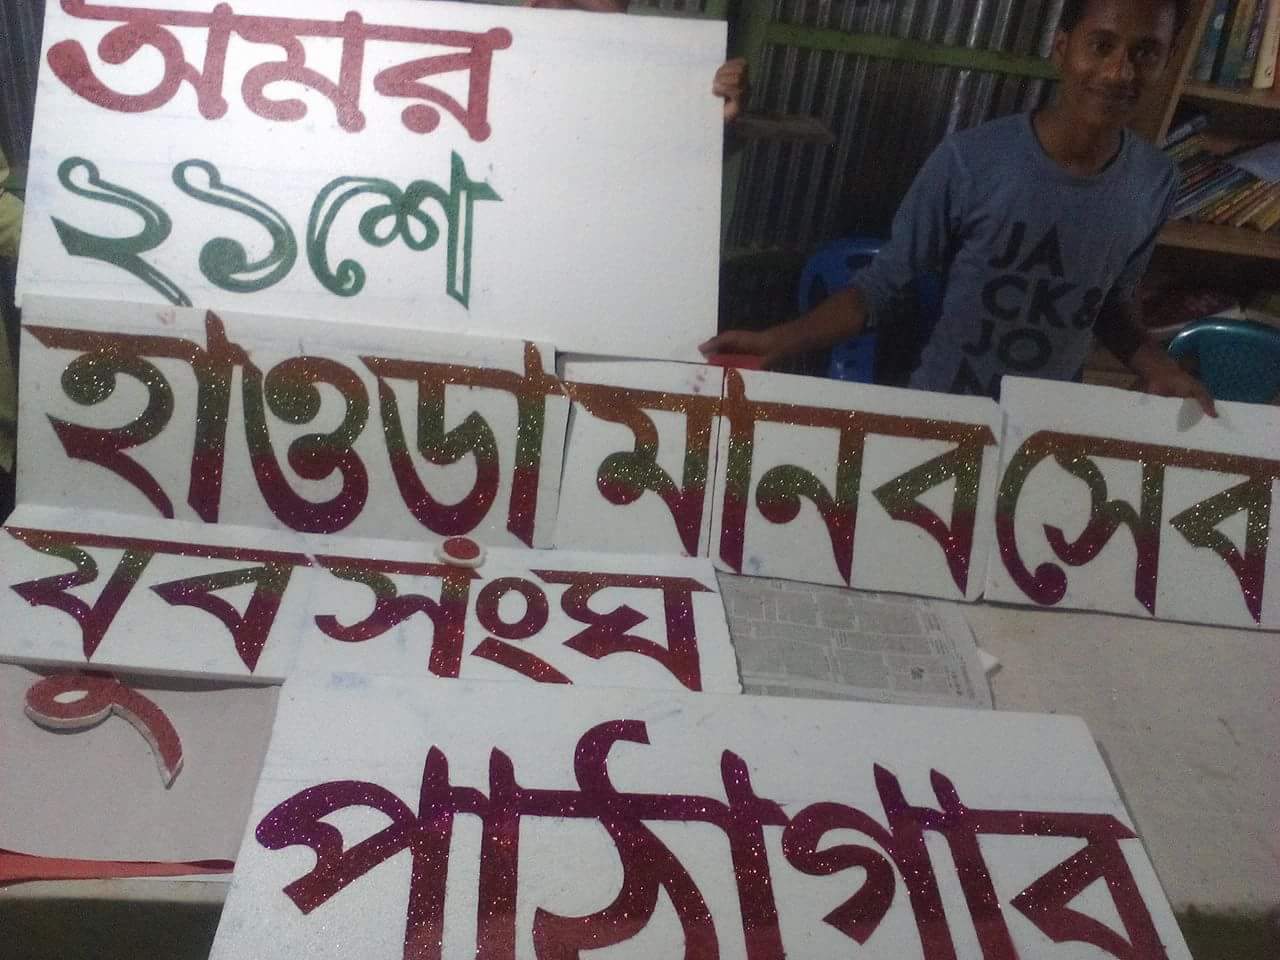 অমর
২১শে
হাওড়া মানবসেব
যুব সংঘ
পাঠাগার
JA
CK&
JO